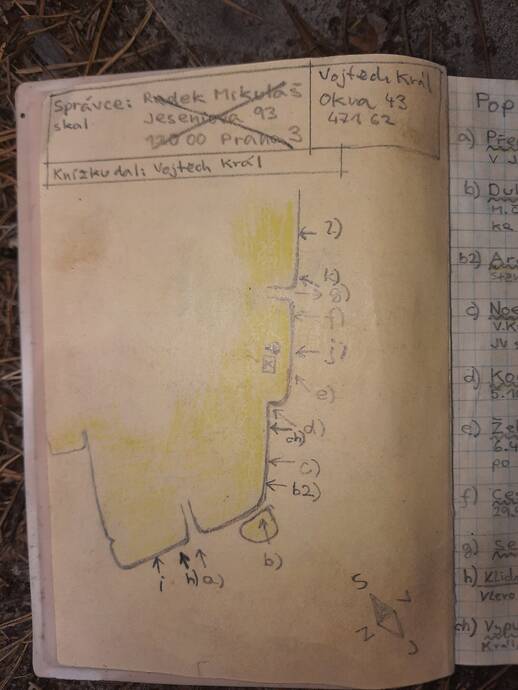 Správce: Radek Mikuláš
skal Jeseniova 93
130 00 Praha 3
Vojtěch Král
Okna 43
471 62
Knížku dal: Vojtěch Král
l)
k)
g)
f)
j)
e)
d)
ch)
c)
b2)
b)
i
h) a)
S
V
Z
J
Pop
a)
V J
b) Dul
M.Č
ka
b2)
c) Noe
V.K
JV
d) Ko
5.10
e) Žel
6.4
po
f) Ces
29.
g) Se
h) Klid
Vlevo
ch) Vypu
Král